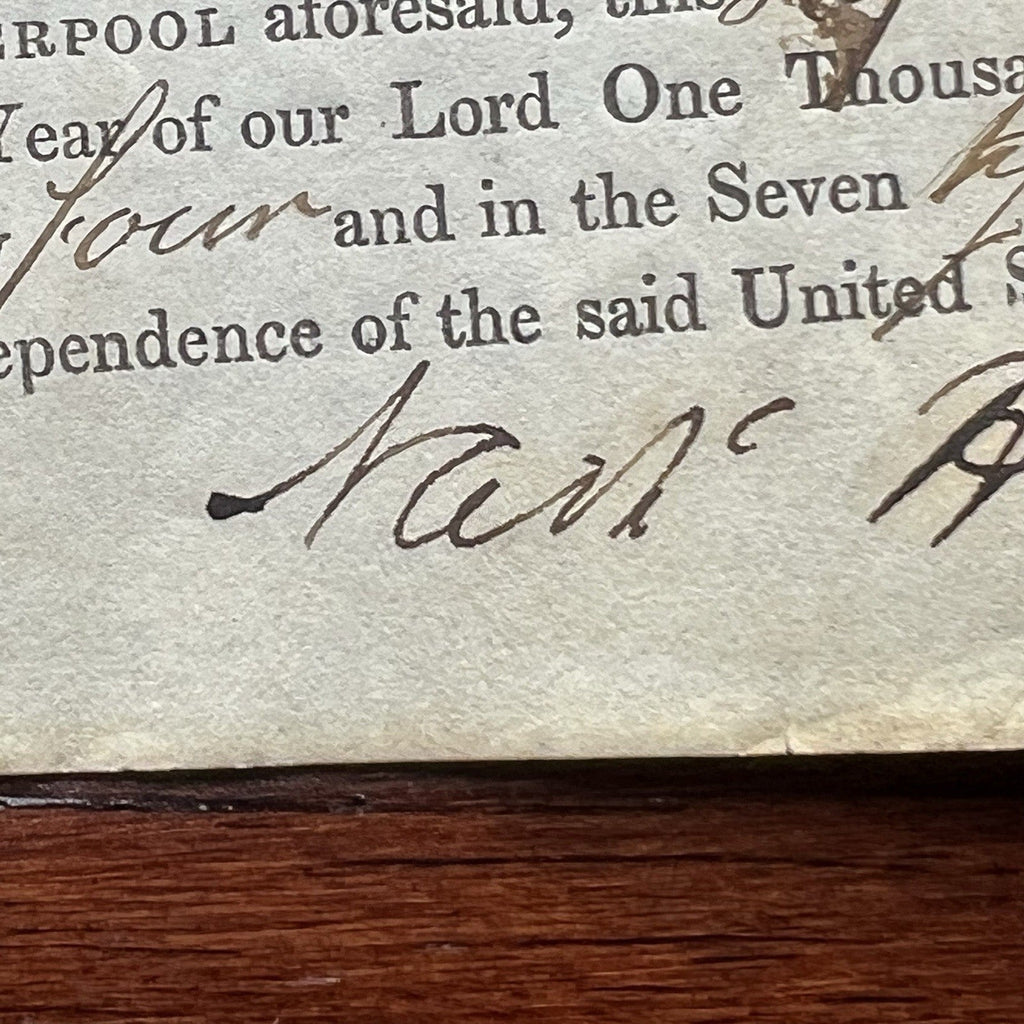 ERPOOL aforesaid, this
Year of our Lord One Thousa
four and in the Seven
ependence of the said United S
Nathl